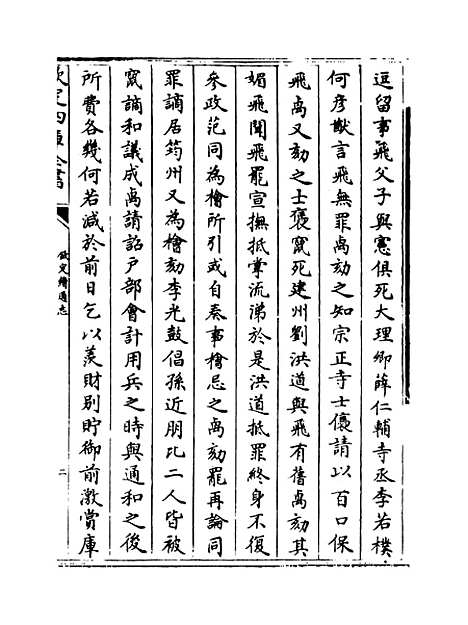 逗留事飛父子與憲俱死大理卿薛仁輔寺丞李若樸
何彦猷言飛無罪卨劾之知宗正寺士㒟請以百口保
飛卨又劾之士㒟竄死建州劉洪道與飛有舊卨劾其
媚飛聞飛罷宣撫抵掌流涕於是洪道抵罪終身不復
參政范同為檜所引或自奏事檜忌之卨劾罷再論同
罪謫居筠州又為檜劾李光鼓倡孫近朋比二人皆被
竄謫和議成卨請詔户部會計用兵之時與通和之後
所費各幾何若減於前日乞以羡財别貯御前激賞庫
欽定四庫全書
欽定續通志
二